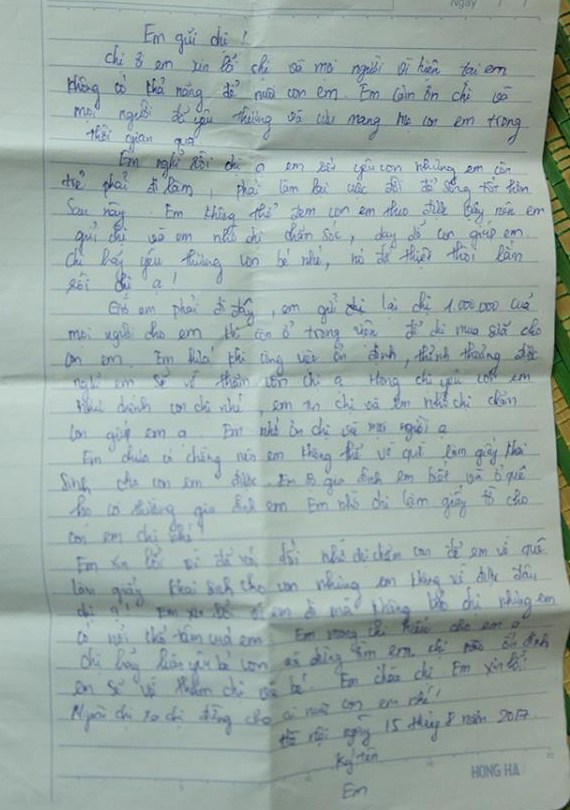 Ngày
Em gửi chị !
Chị ơi em xin lỗi chị và mọi người vì hiện tại em
không có khả năng để nuôi con em. Em cảm ơn chị và
mọi người đã yêu thương và cưu mang mẹ con em trong
thời gian qua
Em nghĩ rồi chị ạ em rất yêu con nhưng em còn
trẻ phải đi làm, phải làm lại cuộc đời để sống tốt hơn
sau này. Em không thể đem con em theo được vậy nên em
gửi chị và em nhờ chị chăm sóc, dạy dỗ con giúp em.
Chị hãy yêu thương con bé nhé, nó đã thiệt thòi lắm
rồi chị ạ !
Giờ em phải đi đây, em gửi lại chị 1.000.000 của
mọi người cho em khi còn ở trong viện để chị mua sữa cho
con em. Em hứa khi công việc ổn định, thỉnh thoảng được
nghỉ em sẽ về thăm con chị ạ. Mong chị yêu con em
như chính con chị nhé, em tin chị và em nhờ chị chăm
con giúp em ạ. Em nhớ ơn chị và mọi người ạ
Em chưa có chồng nên em không thể về quê làm giấy khai
sinh cho con em được. Em sợ gia đình em biết và ở quê
họ cười gia đình em. Em nhờ chị làm giấy tờ cho
con em chị nhé
Em xin lỗi vì đã nói dối nhờ chị chăm con để em về quê
làm giấy khai sinh cho con nhưng em không về được đâu
chị ạ! Em xin lỗi vì em đi mà không bảo chị nhưng em
có nỗi khổ tâm của em. Em mong chị hiểu cho em ạ.
Chị hãy yêu bé con và đừng tìm em chị nào ổn định
em sẽ về thăm chị và bé. Em chào chị. Em xin lỗi.
Ngoài chị ra chị đừng cho ai nuôi con em nhé!
Hà Nội ngày 15 tháng 8 năm 2017
Ký tên
Em
HONG HA